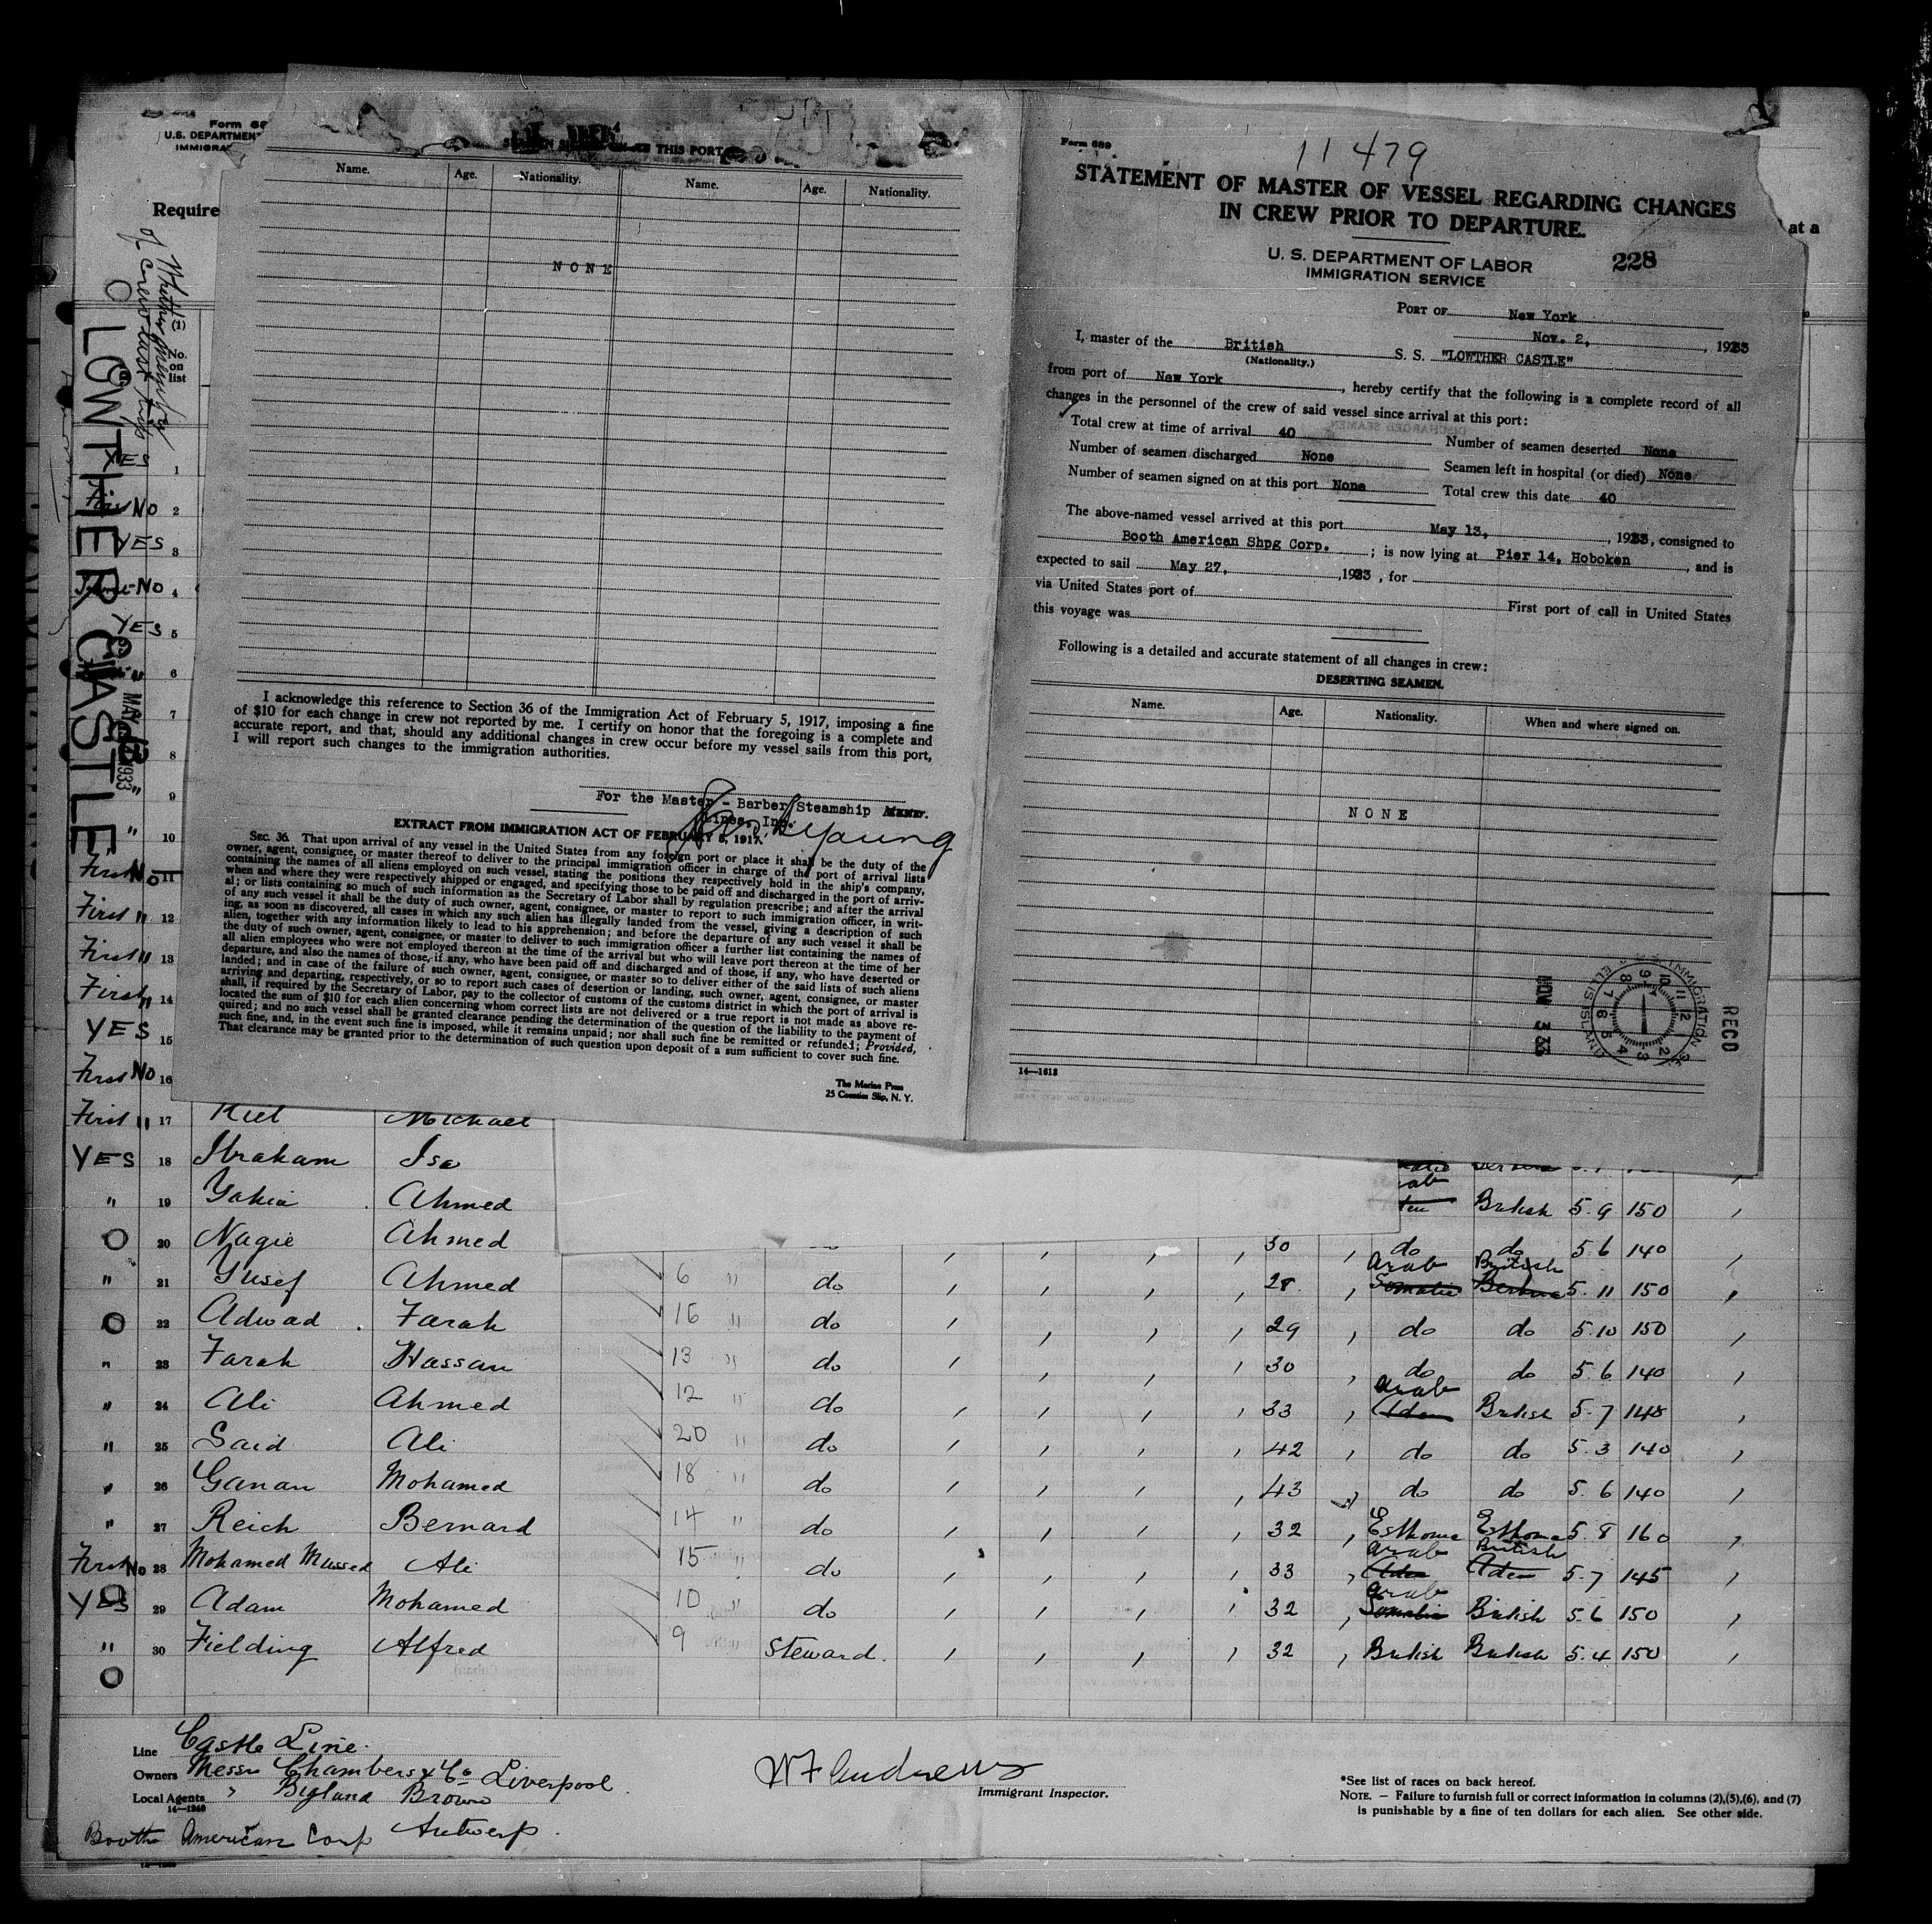 Form 68
U.S. DEPARTMENT
IMMIGRA
Require
at a
Whether member
of crew last trip
(1)
No.
on
list
LOWTHER CASTLE
MAY 1933
THIS PORT
Name. Age. Nationality. Name. Age. Nationality.
NONE
I acknowledge this reference to Section 36 of the Immigration Act of February 5, 1917, imposing a fine
of $10 for each change in crew not reported by me. I certify on honor that the foregoing is a complete and
accurate report, and that, should any additional changes in crew occur before my vessel sails from this port,
I will report such changes to the immigration authorities.
For the Master - Barber Steamship
Lines, Inc.
Young
EXTRACT FROM IMMIGRATION ACT OF FEBRUARY 5, 1917.
SEC. 36. That upon arrival of any vessel in the United States from any foreign port or place it shall be the duty of the
owner, agent, consignee, or master thereof to deliver to the principal immigration officer in charge of the port of arrival lists
containing the names of all aliens employed on such vessel, stating the positions they respectively hold in the ship's company,
when and where they were respectively shipped or engaged, and specifying those to be paid off and discharged in the port of arriv-
al; or lists containing so much of such information as the Secretary of Labor shall by regulation prescribe; and after the arrival
of any such vessel it shall be the duty of such owner, agent, consignee, or master to report to such immigration officer, in writ-
ing, as soon as discovered, all cases in which any such alien has illegally landed from the vessel, giving a description of such
alien, together with any information likely to lead to his apprehension; and before the departure of any such vessel it shall be
the duty of such owner, agent, consignee, or master to deliver to such immigration officer a further list containing the names of
all alien employees who were not employed thereon at the time of the arrival but who will leave port thereon at the time of her
departure, and also the names of those, if any, who have been paid off and discharged and of those, if any, who have deserted or
landed; and in case of the failure of such owner, agent, consignee, or master so to deliver either of the said lists of such aliens
arriving and departing, respectively, or so to report such cases of desertion or landing, such owner, agent, consignee, or master
shall, if required by the Secretary of Labor, pay to the collector of customs of the customs district in which the port of arrival is
located the sum of $10 for each alien concerning whom correct lists are not delivered or a true report is not made as above re-
quired; and no such vessel shall be granted clearance pending the determination of the question of the liability to the payment of
such fine, and, in the event such fine is imposed, while it remains unpaid; nor shall such fine be remitted or refunded; Provided,
That clearance may be granted prior to the determination of such question upon deposit of a sum sufficient to cover such fine.
The Marine Press
25 Coenties Slip, N. Y.
Form 689
11479
STATEMENT OF MASTER OF VESSEL REGARDING CHANGES
IN CREW PRIOR TO DEPARTURE.
U. S. DEPARTMENT OF LABOR
IMMIGRATION SERVICE
228
PORT OF New York
Nov. 2, 1933
I, master of the British S. S. "LOWTHER CASTLE"
(Nationality.)
from port of New York, hereby certify that the following is a complete record of all
changes in the personnel of the crew of said vessel since arrival at this port:
Total crew at time of arrival 40 Number of seamen deserted None
Number of seamen discharged None Seamen left in hospital (or died) None
Number of seamen signed on at this port None Total crew this date 40
The above-named vessel arrived at this port May 13, 1933, consigned to
Booth American Shpg Corp. ; is now lying at Pier 14, Hoboken, and is
expected to sail May 27, 1933, for
via United States port of First port of call in United States
this voyage was
Following is a detailed and accurate statement of all changes in crew:
DESERTING SEAMEN.
Name. Age. Nationality. When and where signed on.
NONE
IMMIGRATION ELLIS ISLAND
NOV 3 33
RECD
14—1618
YES 1
First No 2
YES 3
No 4
YES 5
" 6
7
8
" 9
" 10
First No 11
First " 12
First " 13
First " 14
YES 15
First No 16
First " 17 Kiel Michael
YES 18 Ibraham Isa
" 19 Yahia Ahmed British 5.9 150
20 Nagie Ahmed 30 do do 5.6 140
" 21 Yusef Ahmed 6 " do 28 Arab Somalie British Berbera 5.11 150
22 Adwad Farah 16 " do 29 do do 5.10 150
" 23 Farah Hassan 13 " do 30 do do 5.6 140
" 24 Ali Ahmed 12 " do 33 Arab Aden British 5.7 148
" 25 Said Ali 20 " do 42 do do 5.3 140
" 26 Ganan Mohamed 18 " do 43 do do 5.6 140
" 27 Reich Bernard 14 " do 32 Esthonia Esthonia 5.8 160
First No 28 Mohamed Mussed Ali 15 " do 33 Arab Aden British Aden 5.7 145
YES 29 Adam Mohamed 10 " do 32 Arab Somalie British 5.6 150
" 30 Fielding Alfred 9 " Steward. 32 British British 5.4 150
Line Castle Line.
Owners Messrs Chambers & Co Liverpool
Local Agents " Bigland Brown
14—1240
Booth American Corp Antwerp.
W F Andrews
Immigrant Inspector.
*See list of races on back hereof.
NOTE. — Failure to furnish full or correct information in columns (2),(5),(6), and (7)
is punishable by a fine of ten dollars for each alien. See other side.